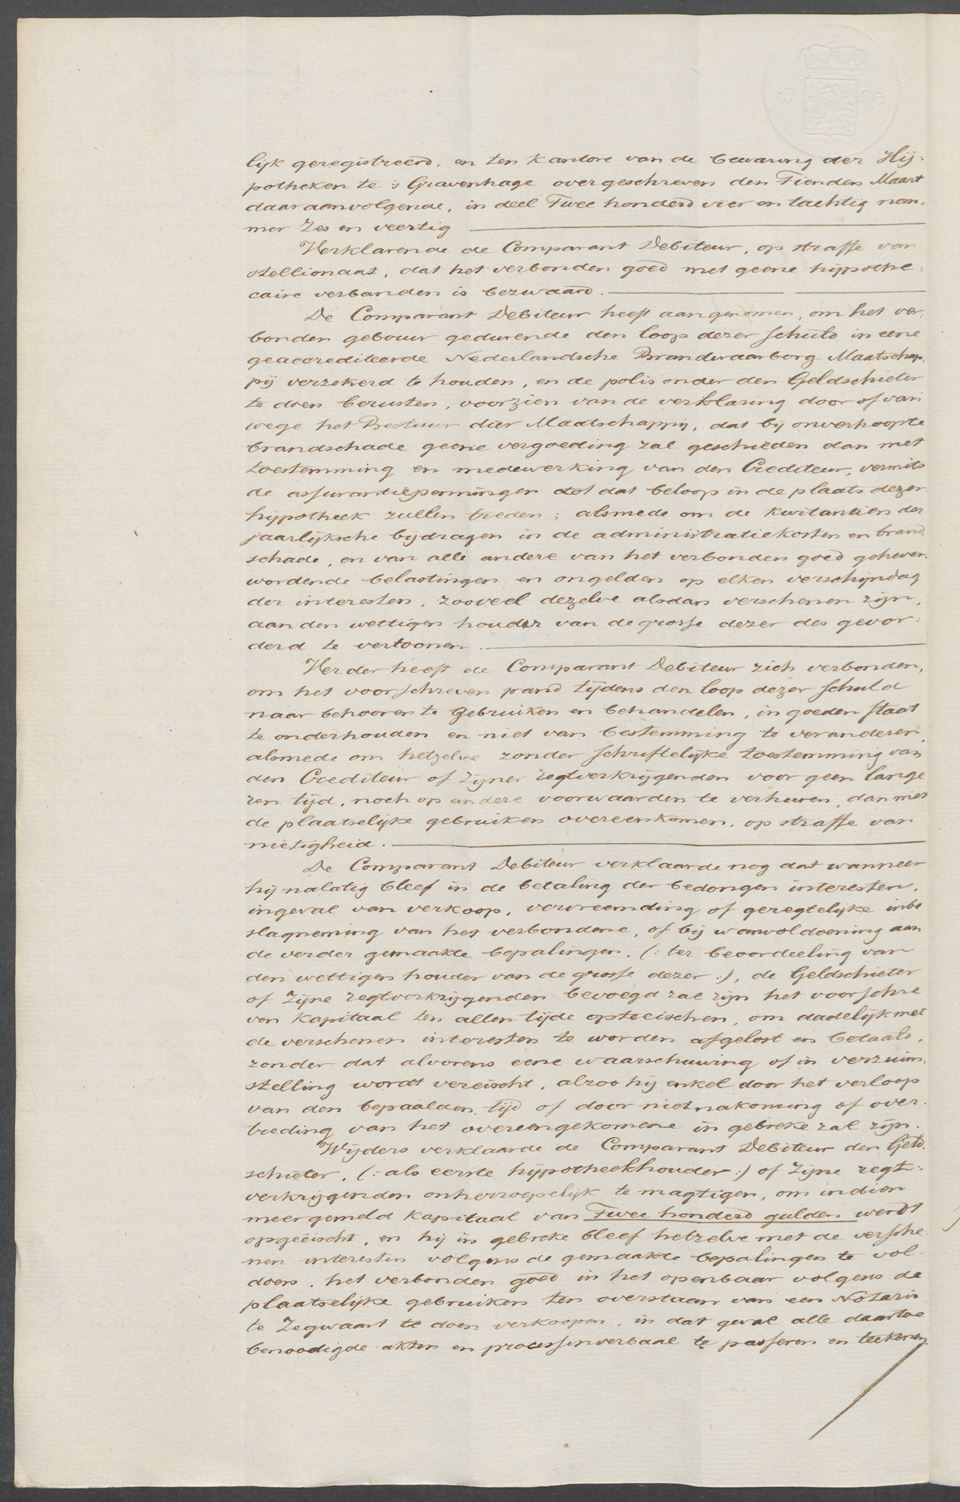 lijk geregistreerd, en ten kantore van de bewaring der Hij-
potheken te 's Gravenhage overgeschreven den Tienden Maart
daaraanvolgende, in deel Twee honderd vier en tachtig num-
mer Zes en veertig
Verklarende de Comparant Debiteur, op straffe van
stellionaat, dat het verbonden goed met geene hijpothe-
caire verbanden is bezwaard.
De Comparant Debiteur heeft aangenomen, om het ver-
bonden gebouw gedurende den loop dezer schuld in eene
geaccrediteerde Nederlandsche Brandwaarborg Maatschap-
pij verzekerd te houden, en de polis onder den Geldschieter
te doen berusten, voorzien van de verklaring door of van
wege het Bestuur dier Maatschappij, dat bij onverhoopte
brandschade geene vergoeding zal geschieden dan met
toestemming en medewerking van den Crediteur, vermits
de assurantiepenningen tot dat beloop in de plaats dezer
hijpotheek zullen treden; alsmede om de kwitantien der
jaarlijksche bijdragen in de administratiekosten en brand
schade, en van alle andere van het verbonden goed geheven
wordende belastingen en ongelden op elken verschijndag
der interesten, zooveel dezelve alsdan verschenen zijn,
aan den wettigen houder van de grosse dezer des gevor-
derd te vertoonen.
Verder heeft de Comparant Debiteur zich verbonden,
om het voorschreven pand tijdens den loop dezer schuld
naar behooren te gebruiken en behandelen, in goeden staat
te onderhouden en niet van bestemming te veranderen,
alsmede om hetzelve zonder schriftelijke toestemming van
den Crediteur of Zijner regtverkrijgenden voor geen lange
ren tijd, noch op andere voorwaarden te verhuren, dan met
de plaatselijke gebruiken overeenkomen, op straffe van
nietigheid.
De Comparant Debiteur verklaarde nog dat wanneer
hij nalatig bleef in de betaling der bedongen interesten,
ingeval van verkoop, vervreemding of geregtelijke inbe
slagneming van het verbondene, of bij wanvoldoening aan
de verder gemaakte bepalingen, (: ter beoordeeling van
den wettigen houder van de grosse dezer :), de Geldschieter
of Zijne regtverkrijgenden bevoegd zal zijn het voorschre
ven kapitaal ten allen tijde opteeischen, om dadelijk met
de verschenen interesten te worden afgelost en betaald,
zonder dat alvorens eene waarschuwing of in verzuim-
stelling wordt vereischt, alzoo hij enkel door het verloop
van den bepaalden tijd of door nietnakoming of over-
treding van het overeengekomene in gebreke zal zijn.
Wijders verklaarde de Comparant Debiteur den Geld-
schieter, (: als eerste hijpotheekhouder :) of Zijne regt-
verkrijgenden onherroepelijk te magtigen, om indien
meergemeld kapitaal van Twee honderd gulden werdt
opgeëischt, en hij in gebreke bleef hetzelve met de versche
nen interesten volgens de gemaakte bepalingen te vol-
doen, het verbonden goed in het openbaar volgens de
plaatselijke gebruiken ten overstaan van een Notaris
te Zegwaart te doen verkoopen, in dat geval alle daartoe
benoodigde akten en processenverbaal te passeren en teekenen